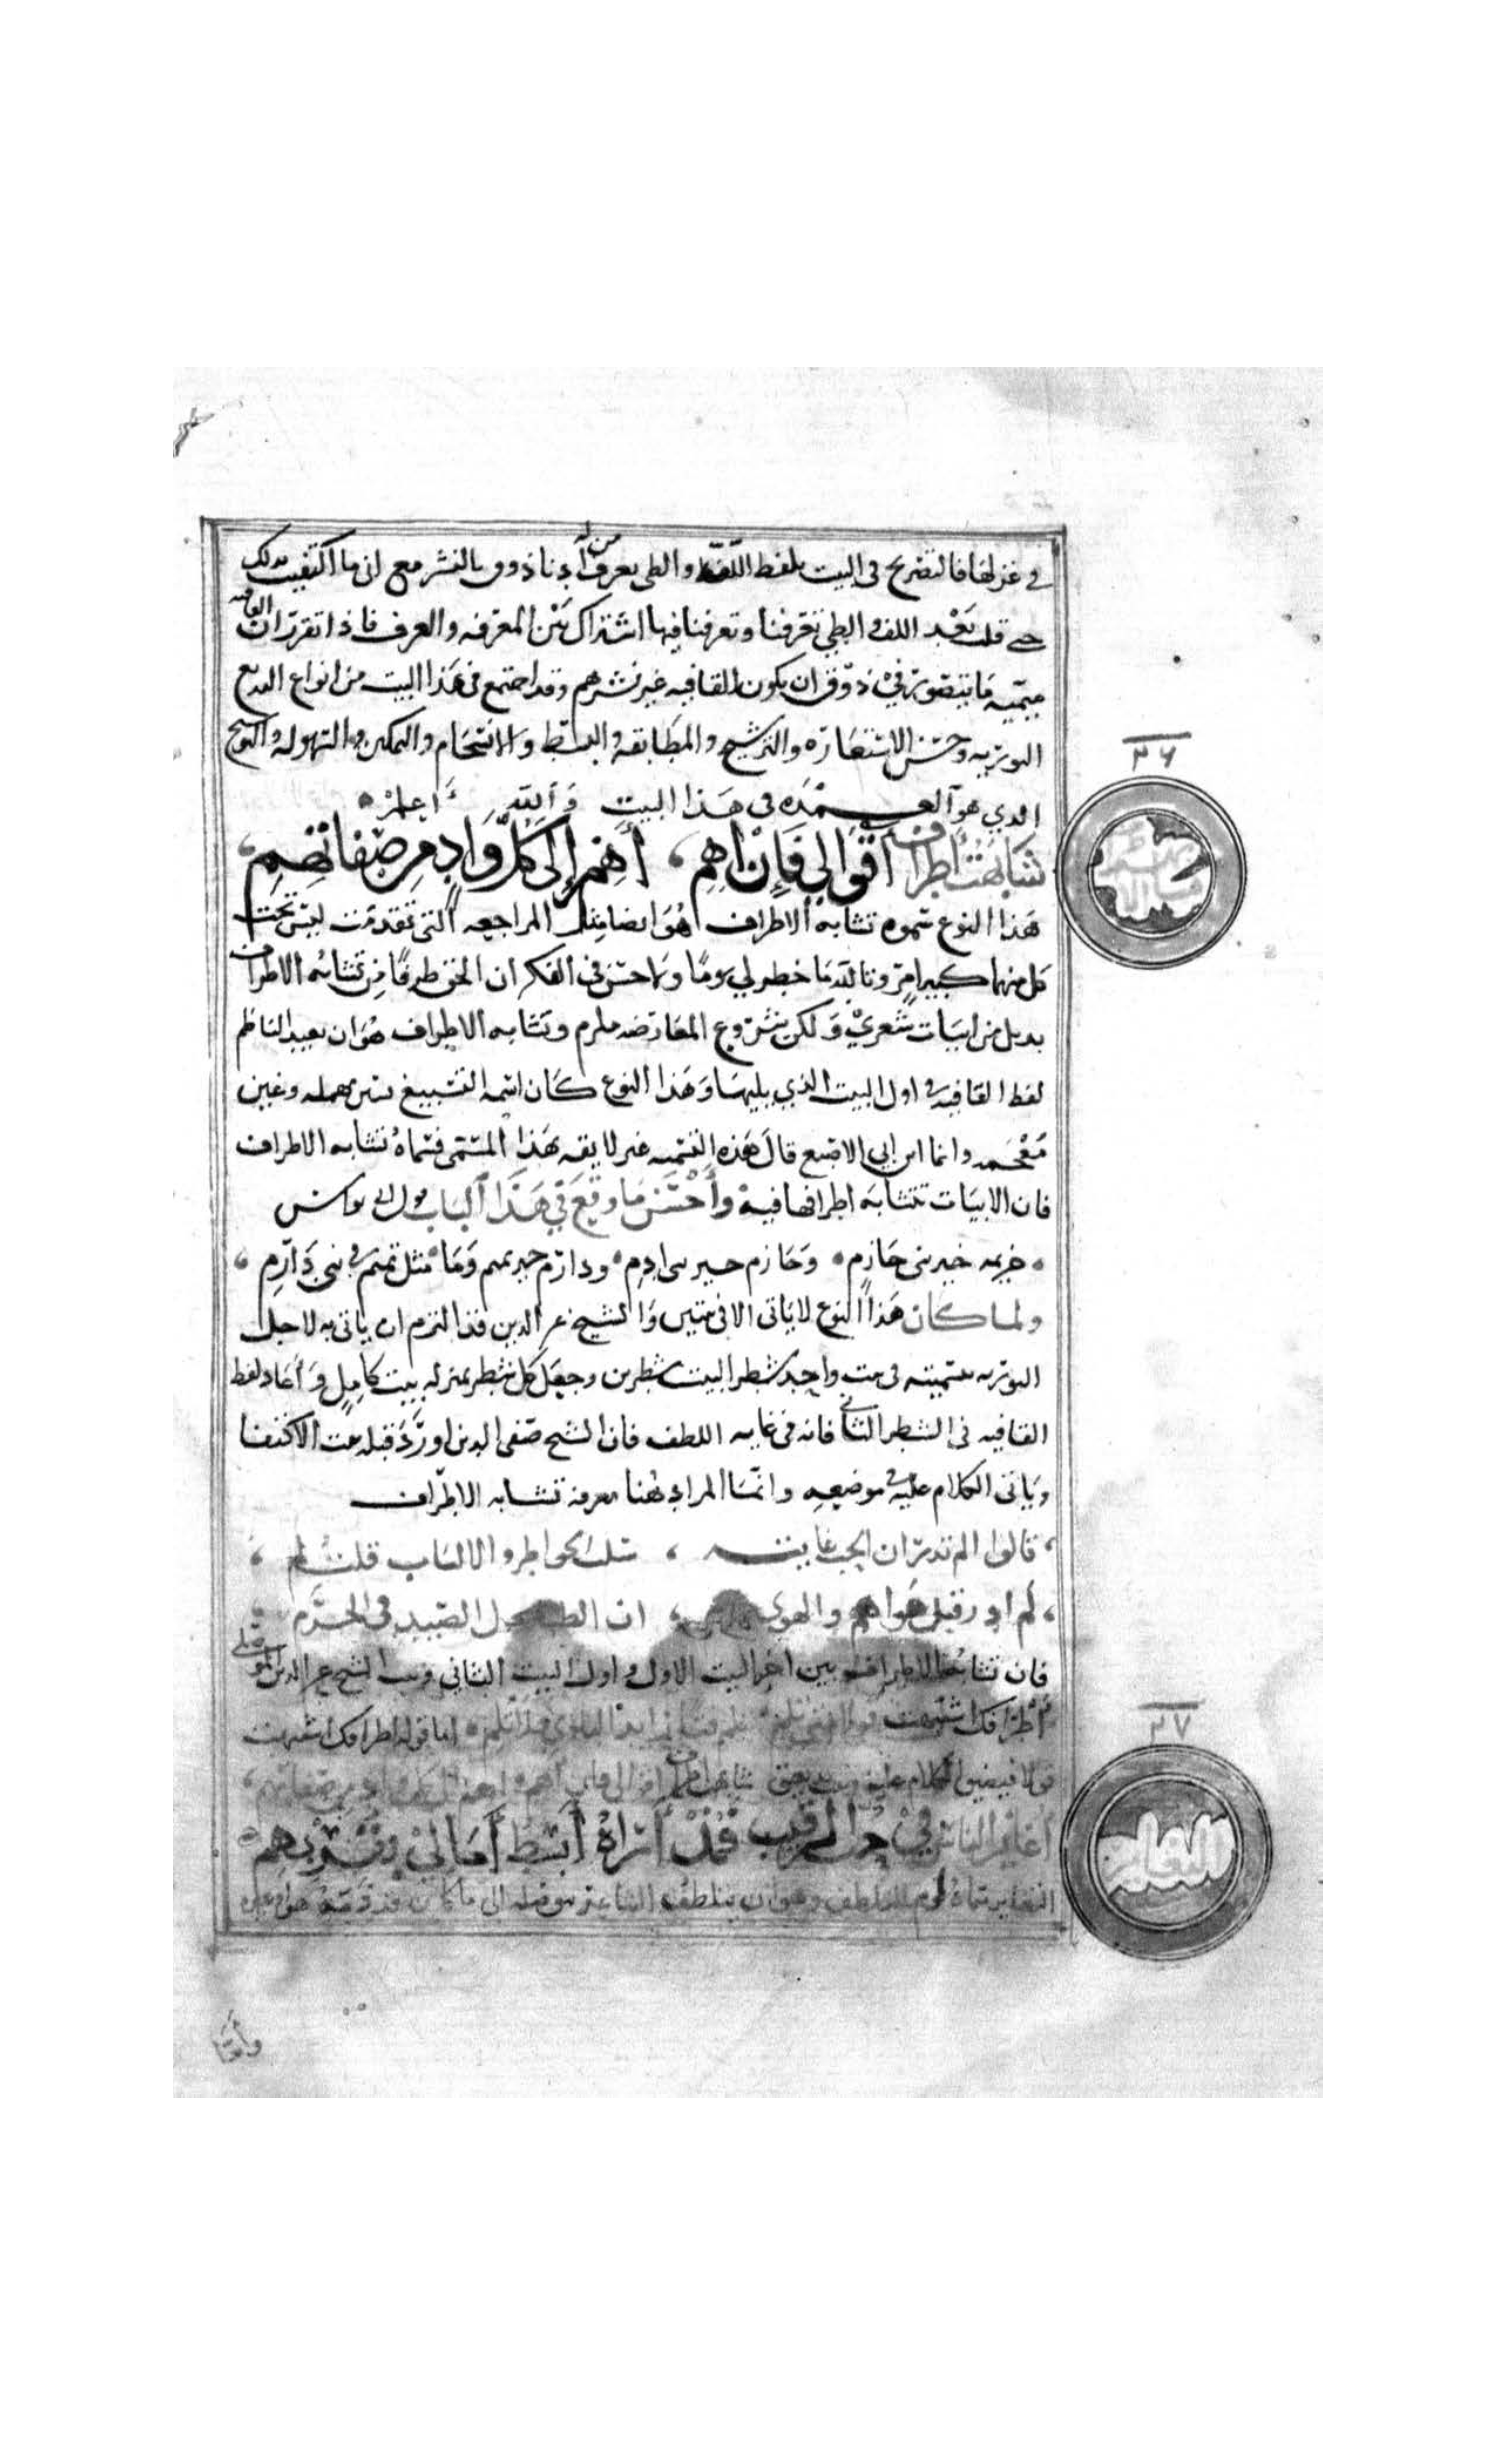 في غزلها فالتصريح في البيت بلفظ اللف والطي يعرف من له أدنا ذوق بالنشر مع اني ما اكتفيت بذلك
حتى قلت بعد اللف والطي تعرفنا وتعرفنا فيها اشتراك بين المعرفه والعرف فاذا تقرر ان القافيه
ميميه ما يتصور في ذوق ان يكون القافيه غير نشرهم وقد اجتمع في هذا البيت من انواع البديع
التوريه وحسن الاستعاره والترشيح والمطابقه والبسط والانسجام والتمكين والسهوله والتوشيح
الذي هو العمده في هذا البيت والله أعلم
٣٦
شابهت أطراف أقوالي فإن أهم ، أهم إلى كل واد من صفاتهم ،
هذا النوع سموه تشابه الاطراف هو ايضا مثل المراجعه التي تقدمت ليس تحت
كل منهما كبير امر وتالله ما خطر لي يوما ولا حسن في الفكر ان الحق طرفا من تشابه الاطراف
بذيل من ابيات شعري ولكن شروع المعارضه ملزم وتشابه الاطراف هو ان يعيد الناظم
لفظ القافيه في اول البيت الذي يليها وهذا النوع كان اسمه التسبيغ بسين مهمله وغين
معجمه وانما ابن ابي الاصبع قال هذه التسميه غير لايقه بهذا المسمى فسماه تشابه الاطراف
فان الابيات تتشابه اطرافها فيه وأحسن ما وقع في هذا الباب قول ابي نواس
خزيمه خير بني حازم وحازم خير بني دارم ودارم خير تميم وما مثل تميم في بني دارم ،
ولما كان هذا النوع لا ياتي الا في بيتين والشيخ عز الدين قد التزم ان ياتي به لاجل
التوريه بتسميته في بيت واحد شطر البيت شطرين وجعل كل شطر بمنزله بيت كامل وأعاد لفظ
القافيه في الشطر الثاني فانه في غايه اللطف فان الشيخ صفي الدين اورد قبله بيت الاكتفا
وياتي الكلام عليه في موضعه وانما المراد هنا معرفة تشابه الاطراف
، قالوا الم تدر ان الحب غايته ، سلب الخواطر والالباب قلت لم ،
، لم ادر قبل هواهم والهوى ، ان الظبا تحل الصيد في الحرم
فان تشابه الاطراف بين اخر البيت الاول واول البيت الثاني وبيت الشيخ عز الدين الموصلي
أطرافك اشتبهت قولا متى تلم اما قوله اطرافك اشتبهت
قولا فيضيق الكلام عليه شابهت اطراف اقوالي فان أهم أهم الى كل واد من صفاتهم ،
٣٧
التغاير
أغاير الناس في حب الرقيب فمذ أراه أبسط أمالي بقربهم
التغاير سماه قوم التلطف وهو ان يتلطف الشاعر
وأما